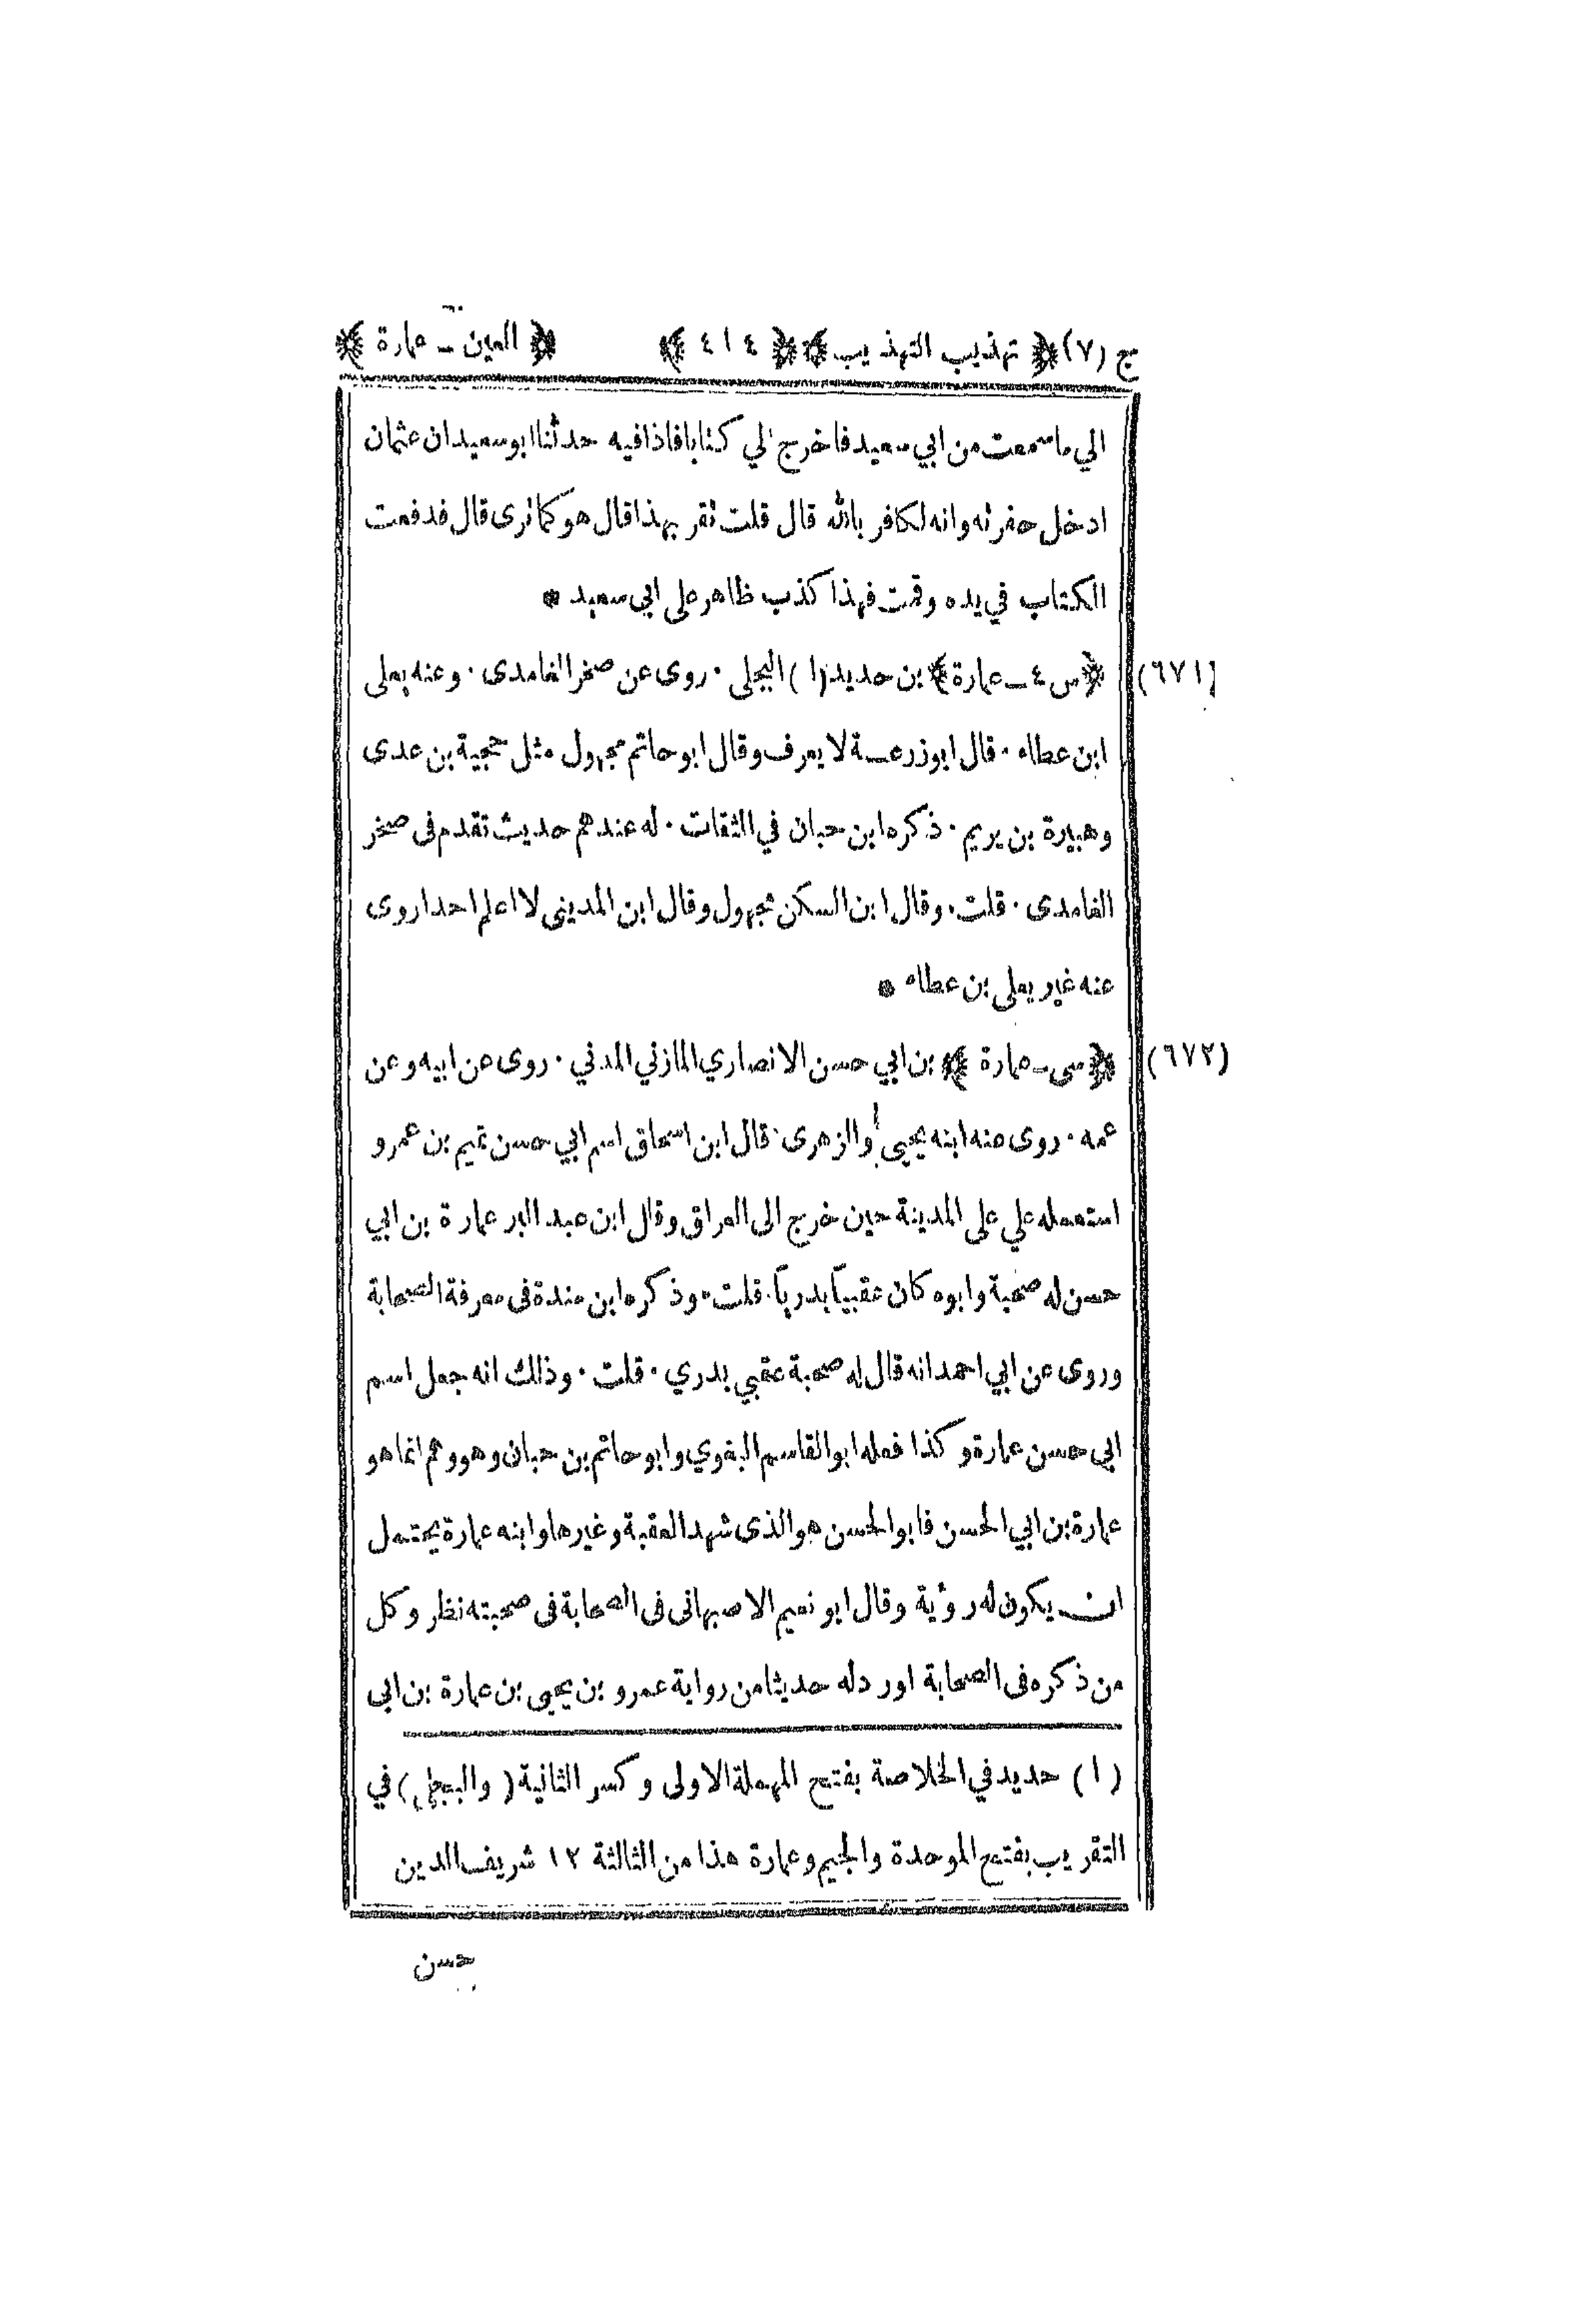 ج (٧) ﴿ تهذيب التهذيب ﴾ ﴿ ٤١٤ ﴾ ﴿ العين ـ عمارة ﴾
الي ما سمعت من ابي سعيد فاخرج الي كتابا فاذا فيه حدثنا ابو سعيد ان عثمان
ادخل حفرته وانه لكافر بالله قال قلت تقر بهذا قال هو كما ترى قال فدفعت
الكتاب في يده وقمت فهذا كذب ظاهر على ابي سعيد *
(٦٧١) ﴿ س ٤ ـ عمارة ﴾ بن حديد (١) البجلي . روى عن صخر الغامدى . وعنه يعلى
ابن عطاء . قال ابو زرعة لا يعرف وقال ابو حاتم مجهول مثل حجية بن عدى
وهبيرة بن يريم . ذكره ابن حبان في الثقات . له عندهم حديث تقدم فى صخر
الغامدى . قلت . وقال ابن السكن مجهول وقال ابن المدينى لا اعلم احدا روى
عنه غير يعلى بن عطاء *
(٦٧٢) ﴿ سى ـ عمارة ﴾ بن ابي حسن الانصاري المازني المدني . روى عن ابيه وعن
عمه . روى عنه ابنه يحيى والزهرى . قال ابن اسحاق اسم ابي حسن تميم بن عمرو
استعمله علي على المدينة حين خرج الى العراق وقال ابن عبد البر عمارة بن ابي
حسن له صحبة وابوه كان عقبياً بدرياً . قلت . وذكره ابن مندة فى معرفة الصحابة
وروى عن ابي احمد انه قال له صحبة عقبي بدري . قلت . وذلك انه جعل اسم
ابى حسن عمارة وكذا فعله ابو القاسم البغوي وابو حاتم بن حبان وهو وهم انما هو
عمارة بن ابي الحسن فابو الحسن هو الذى شهد العقبة وغيرها وابنه عمارة يحتمل
ان يكون له رؤية وقال ابو نعيم الاصبهانى فى الصحابة فى صحبته نظر وكل
من ذكره فى الصحابة اورد له حديثا من رواية عمرو بن يحيى بن عمارة بن ابى
(١) حديد في الخلاصة بفتح المهملة الاولى وكسر الثانية ( والبجلي ) في
التقريب بفتح الموحدة والجيم وعمارة هذا من الثالثة ١٢ شريف الدين
حسن